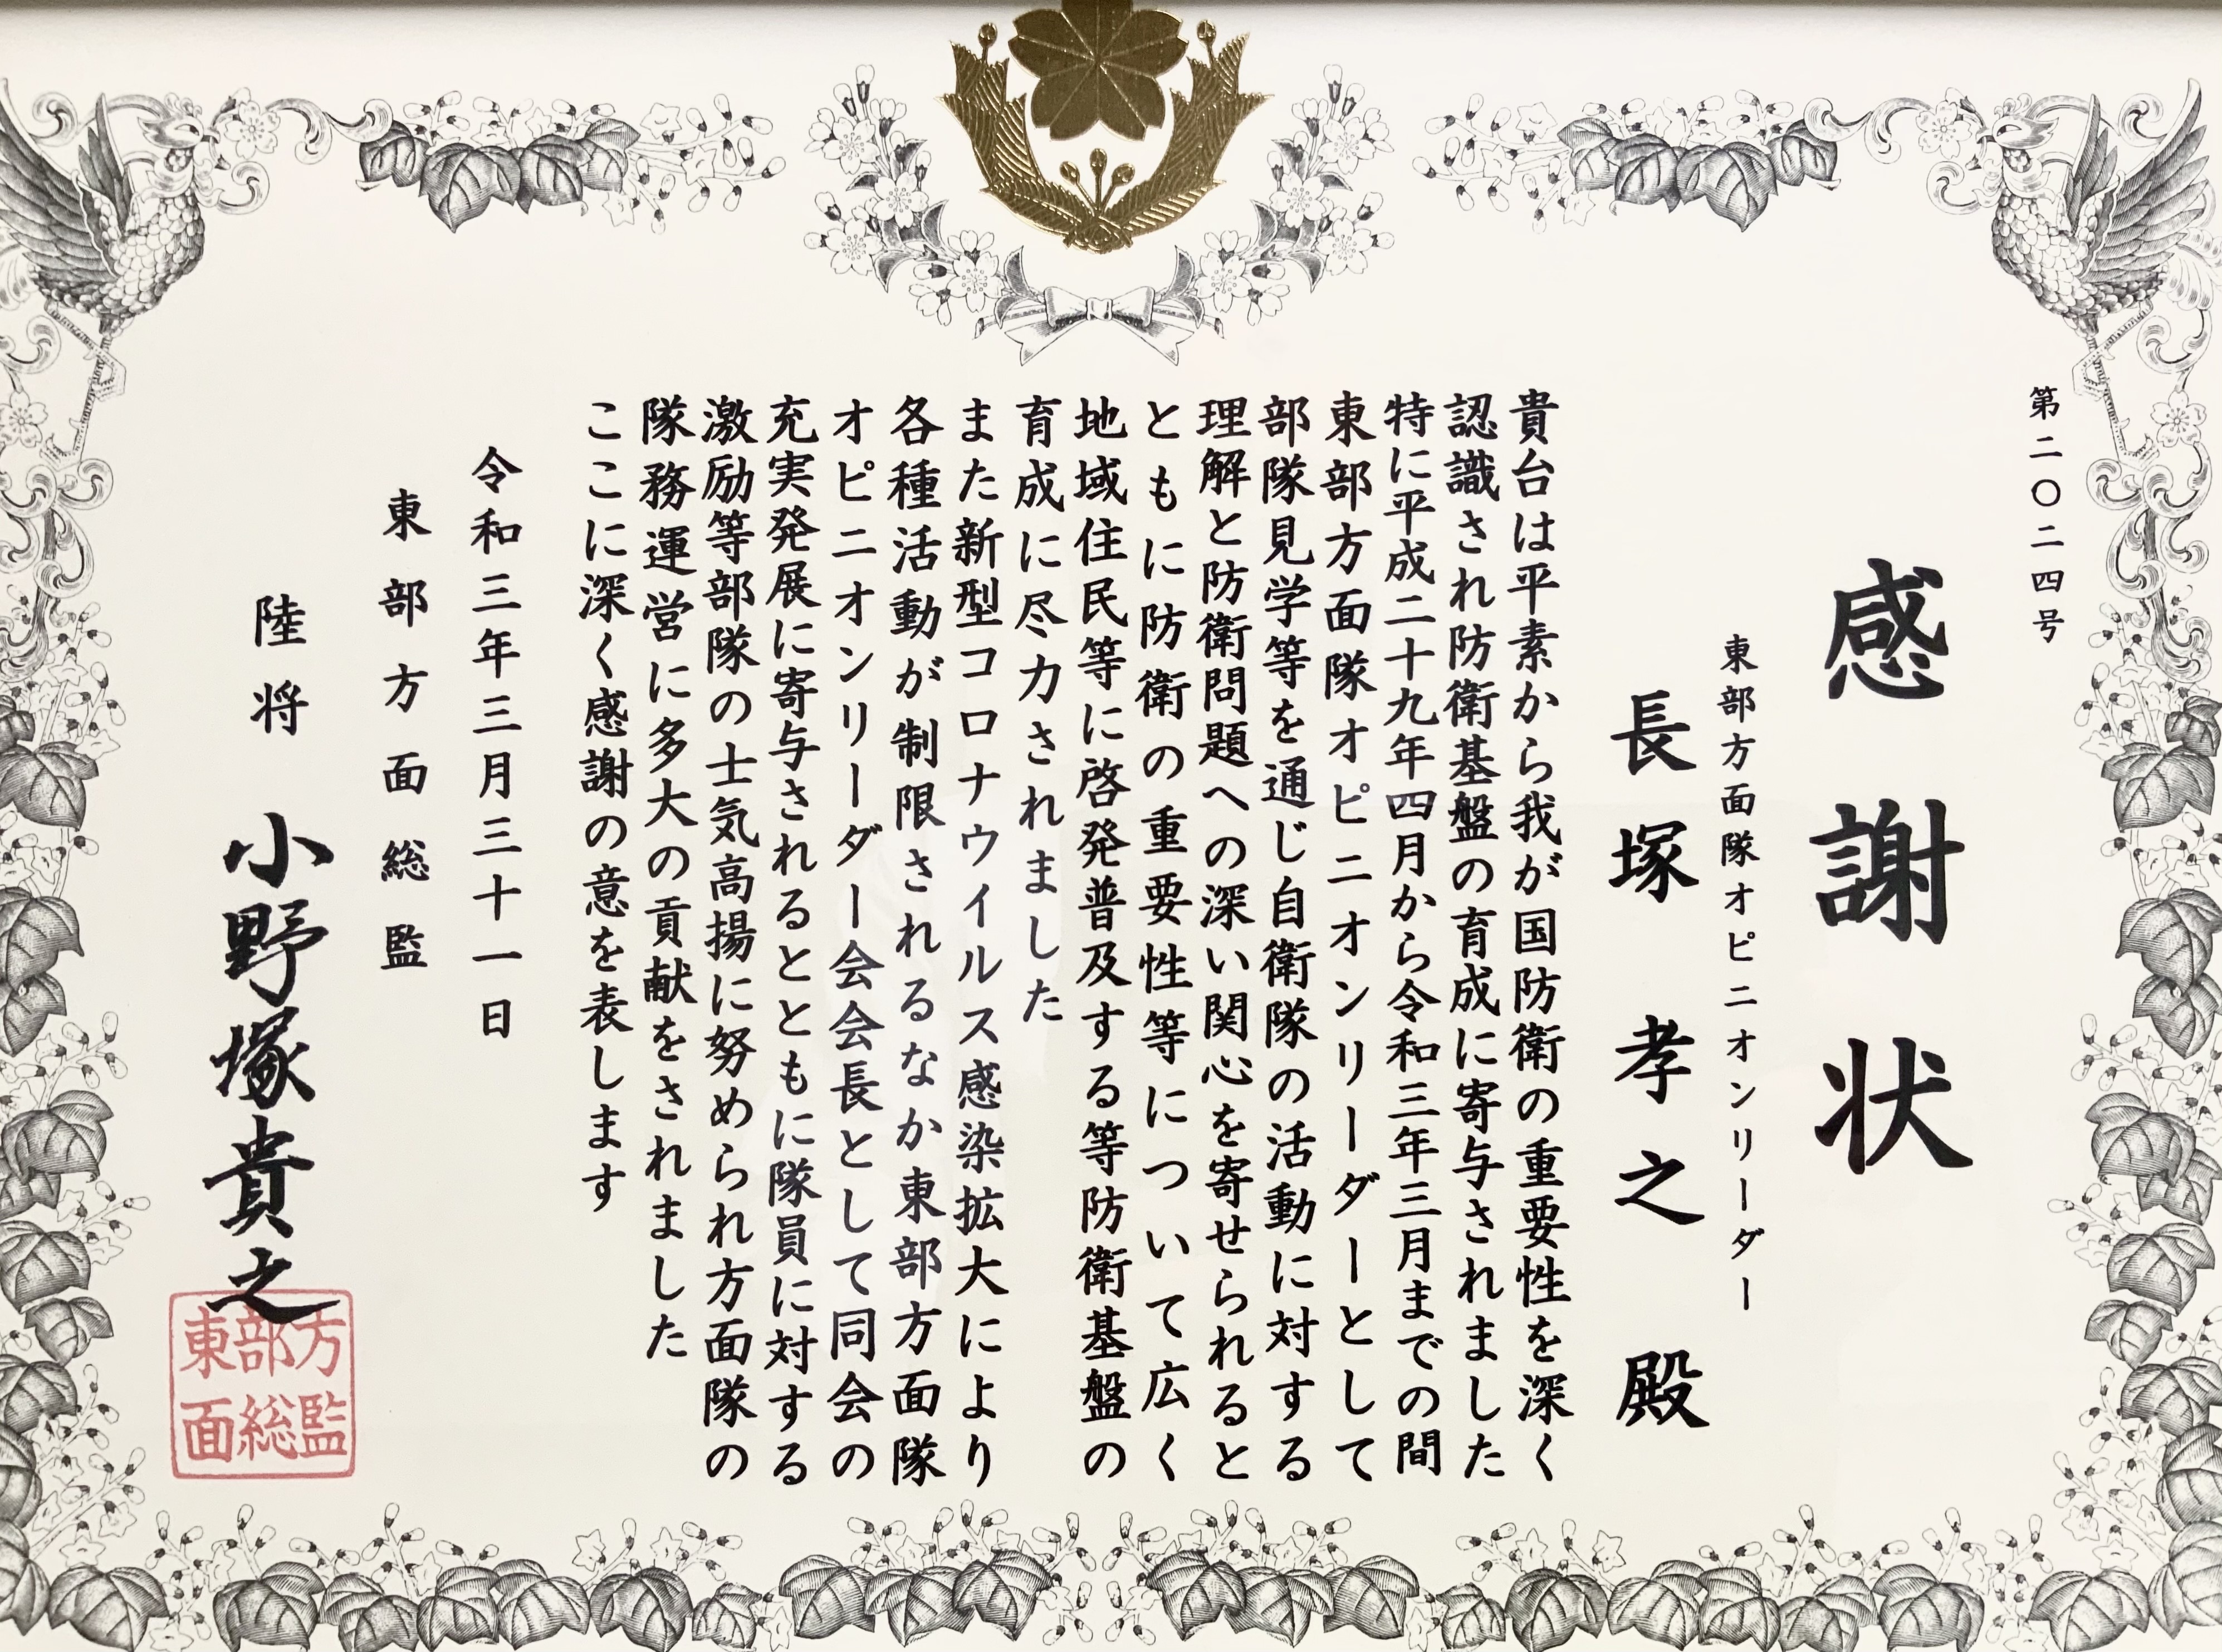 第二〇二四号
感謝状
東部方面隊オピニオンリーダー
長塚孝之殿
貴台は平素から我が国防衛の重要性を深く
認識され防衛基盤の育成に寄与されました
特に平成二十九年四月から令和三年三月までの間
東部方面隊オピニオンリーダーとして
部隊見学等を通じ自衛隊の活動に対する
理解と防衛問題への深い関心を寄せられると
ともに防衛の重要性等について広く
地域住民等に啓発普及する等防衛基盤の
育成に尽力されました
また新型コロナウイルス感染拡大により
各種活動が制限されるなか東部方面隊
オピニオンリーダー会会長として同会の
充実発展に寄与されるとともに隊員に対する
激励等部隊の士気高揚に努められ方面隊の
隊務運営に多大の貢献をされました
ここに深く感謝の意を表します
令和三年三月三十一日
東部方面総監
陸将 小野塚貴之
東部方
面総監